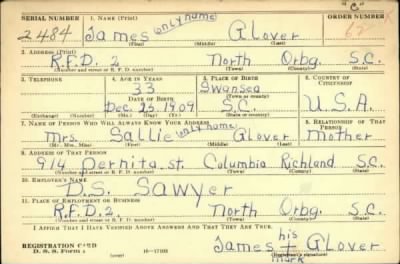 "C"
SERIAL NUMBER 1. NAME (Print) ORDER NUMBER
2484 James only name Glover
(First) (Middle) (Last)
2. ADDRESS (Print)
R.F.D. 2. North Orbg. S.C.
(Number and street or R. F. D. number) (Town) (County) (State)
3. TELEPHONE 4. AGE IN YEARS 5. PLACE OF BIRTH 6. COUNTRY OF CITIZENSHIP
33 Swansea
DATE OF BIRTH (Town or county)
Dec. 25 1909 S.C. U.S.A.
(Exchange) (Number) (Mo.) (Day) (Yr.) (State or country)
7. NAME OF PERSON WHO WILL ALWAYS KNOW YOUR ADDRESS 8. RELATIONSHIP OF THAT PERSON
Mrs. Sallie only name Glover Mother
(Mr., Mrs., Miss) (First) (Middle) (Last)
9. ADDRESS OF THAT PERSON
914 Dernita st. Columbia Richland S.C.
(Number and street or R. F. D. number) (Town) (County) (State)
10. EMPLOYER'S NAME
D.S. Sawyer
11. PLACE OF EMPLOYMENT OR BUSINESS
R.F.D. 2. North Orbg. S.C.
(Number and street or R. F. D. number) (Town) (County) (State)
I AFFIRM THAT I HAVE VERIFIED ABOVE ANSWERS AND THAT THEY ARE TRUE.
REGISTRATION CARD James his + mark Glover
D. S. S. Form 1 (over) 16—17105 (Registrant's signature)